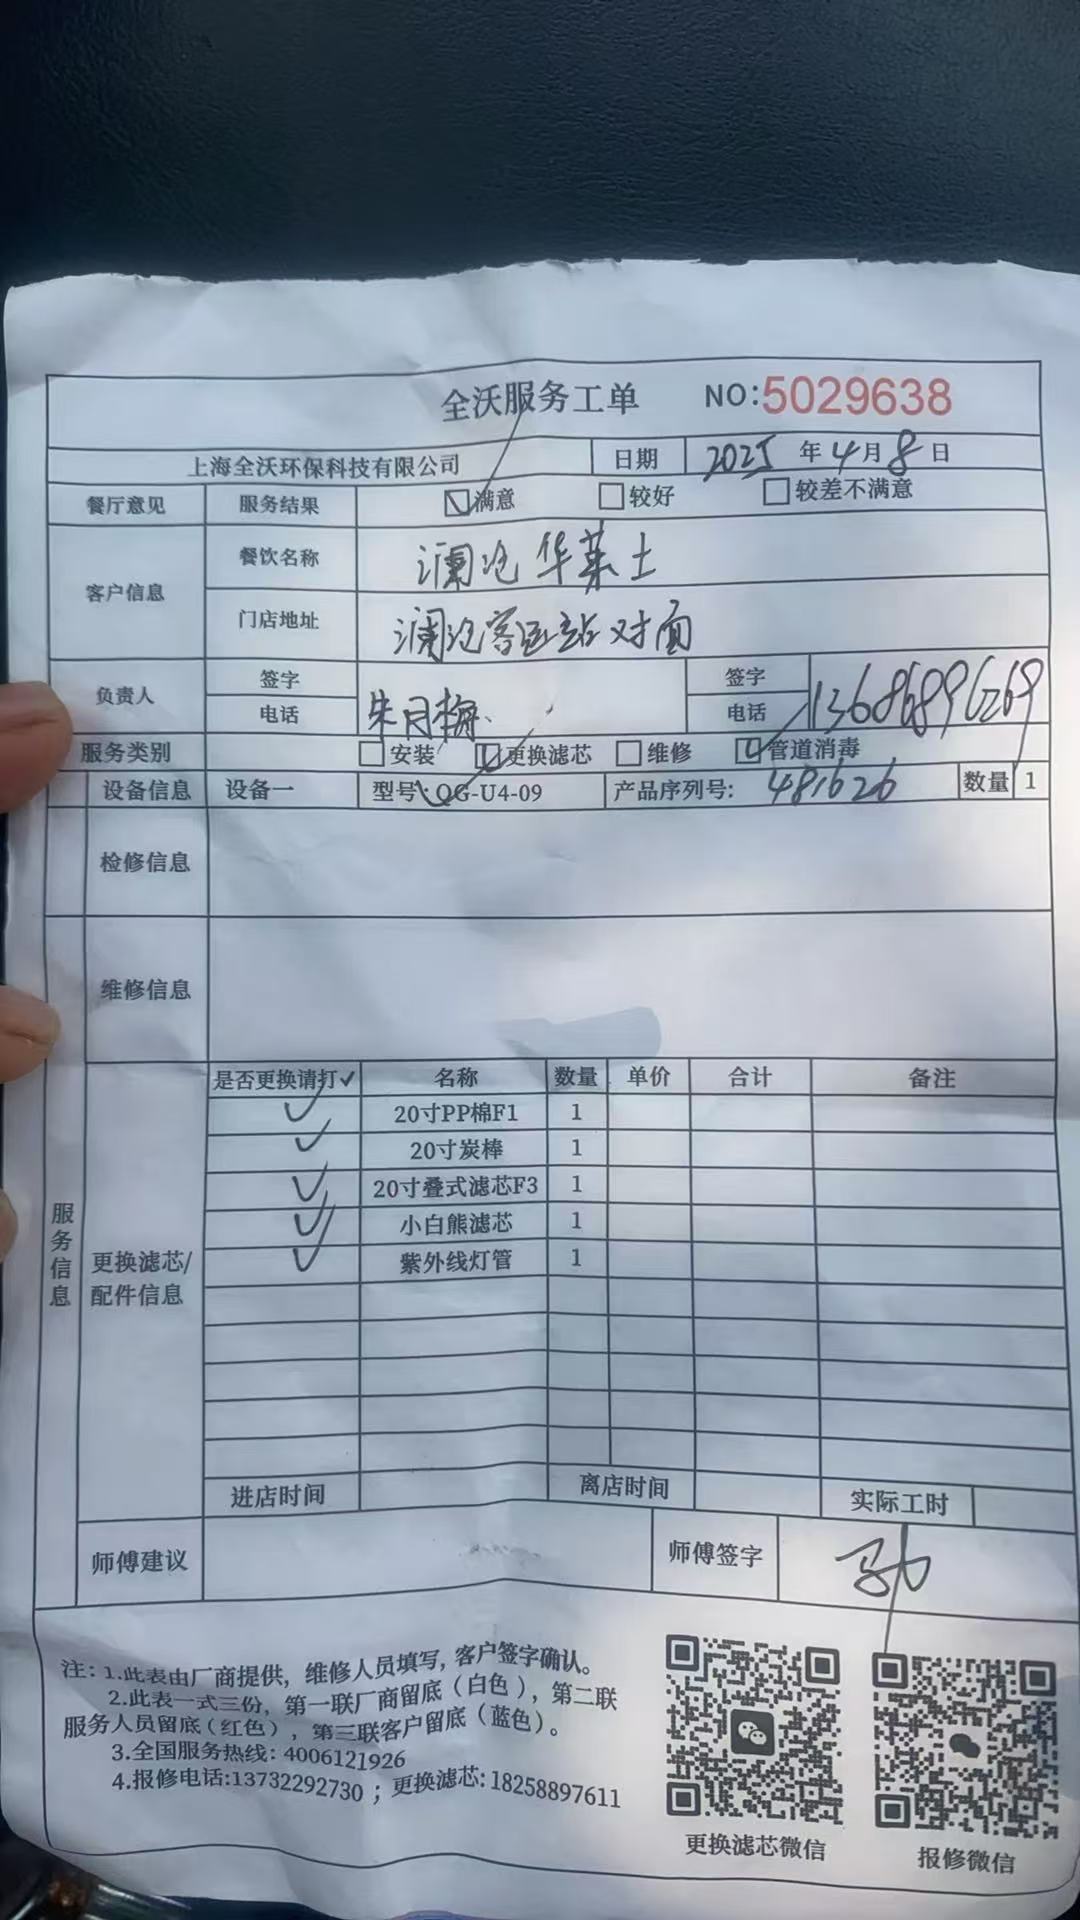 全沃服务工单 NO:5029638
上海全沃环保科技有限公司 日期 2025年4月8日
餐厅意见 服务结果 满意 较好 较差不满意
客户信息 餐饮名称 澜沧华莱士
门店地址 澜沧客运站对面
负责人 签字 朱月梅 签字
电话 电话 13686896269
服务类别 安装 更换滤芯 维修 管道消毒
设备信息 设备一 型号:QG-U4-09 产品序列号: 481626 数量 1
检修信息
维修信息
服务信息
更换滤芯/配件信息
是否更换请打✓ 名称 数量 单价 合计 备注
✓ 20寸PP棉F1 1
✓ 20寸炭棒 1
✓ 20寸叠式滤芯F3 1
✓ 小白熊滤芯 1
✓ 紫外线灯管 1
进店时间 离店时间 实际工时
师傅建议 师傅签字
注：1.此表由厂商提供，维修人员填写，客户签字确认。
2.此表一式三份，第一联厂商留底（白色），第二联
服务人员留底（红色），第三联客户留底（蓝色）。
3.全国服务热线：4006121926
4.报修电话:13732292730；更换滤芯:18258897611
更换滤芯微信 报修微信